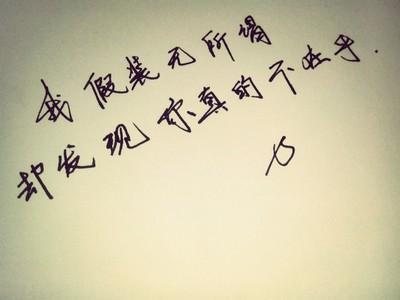 我假装无所谓
却发现你真的不在乎.